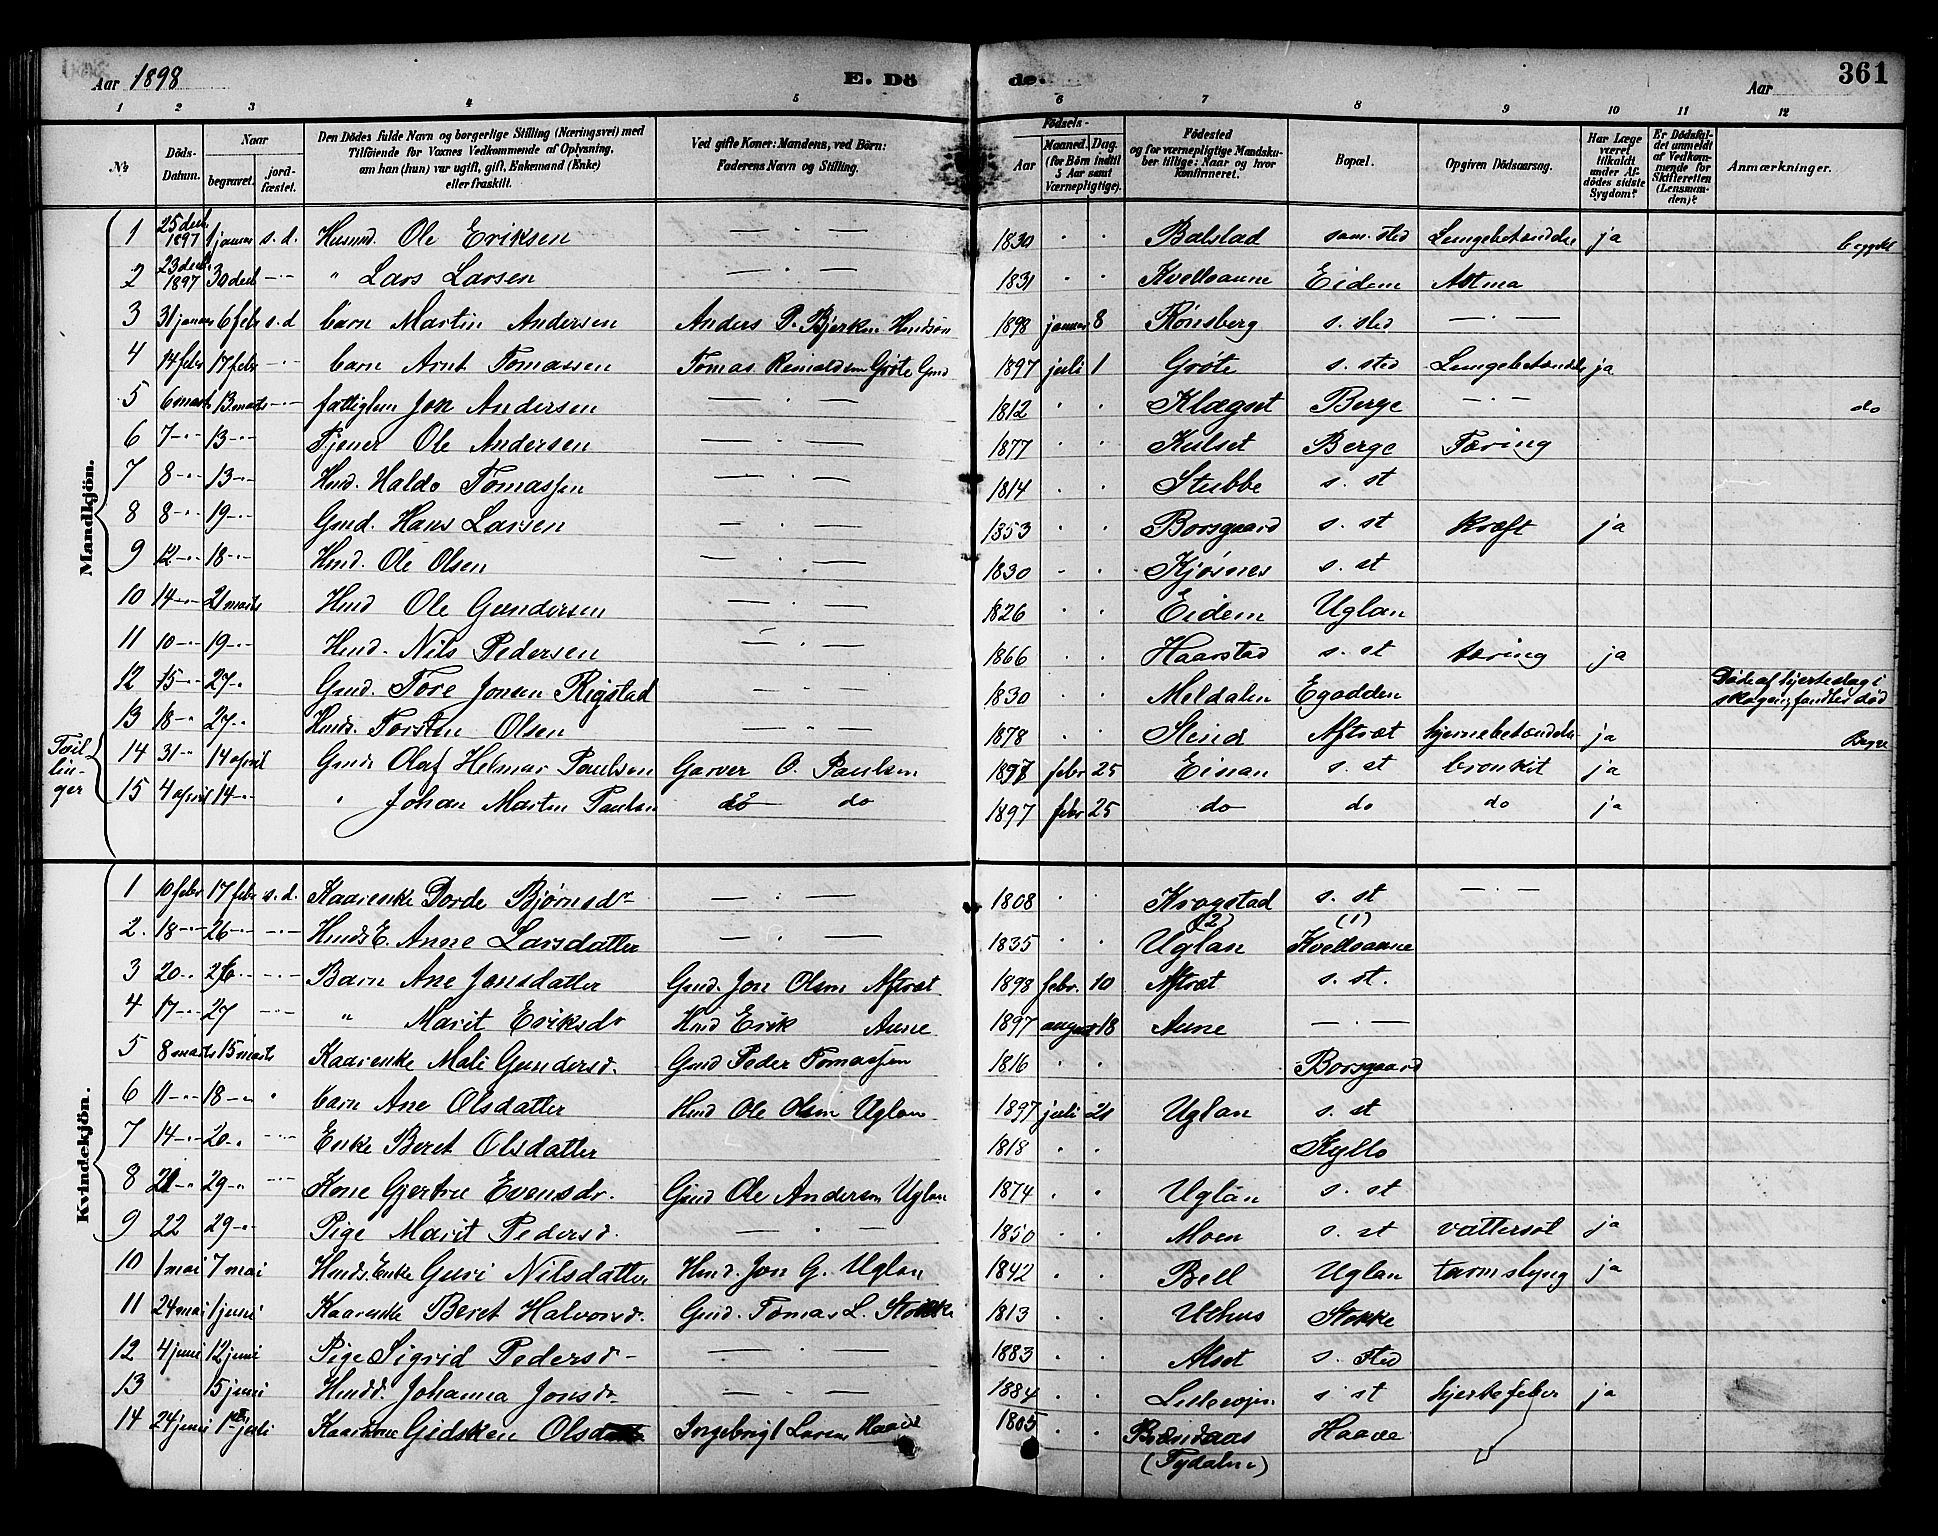 Aar 1898 E. Döde. Aar 361
1 2 3 4 5 6 7 8 9 10 11 12
No. Döds-Datum. Naar begravet. jordfæstet. Den Dödes fulde Navn og borgerlige Stilling (Næringsvei) med Tilföiende for Voxnes Vedkommende af Oplysning, om han (hun) var ugift, gift, Enkemand (Enke) eller fraskilt. Ved gifte Koner: Mandens, ved Börn: Faderens Navn og Stilling. Födsels- Aar Maaned. Dag. (for Börn indtil 5 Aar samt Værnepligtige). Födested og for værnepligtige Mandskuber tillige: Naar og hvor konfirmeret. Bopæl. Opgiven Dödsaarsag. Har Læge været tilkaldt under Afdödes sidste Sygdom? Er Dödsfaldet anmeldt af Vedkommende for Skifteretten (Lensmanden)? Anmærkninger.
Mandkjön.
1 25 decb 1897 1 januar s. d. Husmd. Ole Eriksen — · — 1830 Balstad sam. sted Lungebetændelse ja
2 23 decb 1897 30 decb -·- " Lars Larsen — · — 1831 Kvelloaune Eidem Astma
3 31 januar 6 febr s. d barn Martin Andersen Anders P. Bjerken Hmdsøn 1898 januar 8 Rønsberg s. sted — · —
4 14 febr 17 febr -·- barn Arnt Tomassen Tomas Reinaldsen Grøte Gmd 1897 juli 1 Grøte s. sted Lungebetændelse ja
5 6 marts 13 marts -·- fattiglem Jon Andersen — · — 1812 Klægset Berge — · — do
6 7 -·- 13 -·- Tjener Ole Andersen — · — 1877 Kulset Berge Tæring
7 8 -·- 13 -·- Hmd. Haldo Tomassen — · — 1814 Stubbe s. st
8 8 -·- 19 -·- Gmd. Hans Larsen — · — 1853 Borsgaard s. st Kræft ja
9 12 -·- 18 -·- Hmd. Ole Olsen — · — 1830 Kjøsnes s. st
10 14 -·- 21 marts Hmd Ole Gundersen — · — 1826 Eidem Uglan
11 10 -·- 19 -·- Hmd. Nils Pedersen — · — 1866 Haarstad s. st tæring ja
12 15 -·- 27 -· Gmd. Tore Jonsen Rigstad — · — 1830 Meldalen Egodden Døde af hjerteslag i skogen; fandtes død
13 18 -· 27 -·- Hmds. Torsten Olsen — · — 1878 Steind Aftræt hjernebetændelse ja
Tvillinger
14 31 -· 14 april Gmds Olaf Helmar Paulsen Garver O. Paulsen 1897 febr 25 Einan s. st bronkit ja
15 4 april 14 -·- " Johan Martin Paulsen do do 1897 febr 25 do do do ja
Kvindekjön.
1 10 febr 17 febr s. d. Kaarenke Dorde Bjørnsdr — · — 1808 Krogstad s. st — · —
2. 18 -·- 26 -·- -·- Hmds E. Anne Larsdatter — · — 1835 Uglan (2) Kvelloaune (1)
3 20 -·- 26 -·- -·- Barn Ane Jonsdatter Gmd. Jon Olsen Aftræt 1898 febr. 10 Aftræt s. st.
4 17 -·- 27 -·- " Marit Eriksdr Hmd Erik Aune 1897 august 18 Aune — · —
5 8 marts 15 marts Kaarenke Mali Gundersd. Gmd Peder Tomassen 1816 Borsgaard
6 11 -·- 18 -·- barn Ane Olsdatter Hmd Ole Olsen Uglan 1897 juli 21 Uglan s. st
7 14 -·- 20 -· -·- Enke Beret Olsdatter 1818 Kyllo
8 21 -·- 29 -· -·- Kone Gjertru Evensdr. Gmd Ole Andersen Uglan 1874 Uglan s. st
9 22 29 -·- Pige Marit Pedersd. — · — 1850 Moen s. st vattersot ja
10 1 mai 7 mai Hmds. Enke Guri Nilsdatter Hmd. Jon G. Uglan 1842 Bell Uglan tarmslyng ja
11 24 mai 1 juni Kaarenke Beret Halvorsd. Gmd. Tomas L. Stokke 1813 Uthus Stokke
12 4 juni 12 juni Pige Sigrid Pedersd — · — 1883 Alset s. sted
13 15 juni Hmdd. Johanna Jonsdr — · — 1884 Lillevojen s. st hjertefeber ja
14 24 juni 1 juli Gidsken Ingebrigt Larsen 1805 Brændaas (Tydalen) Haave